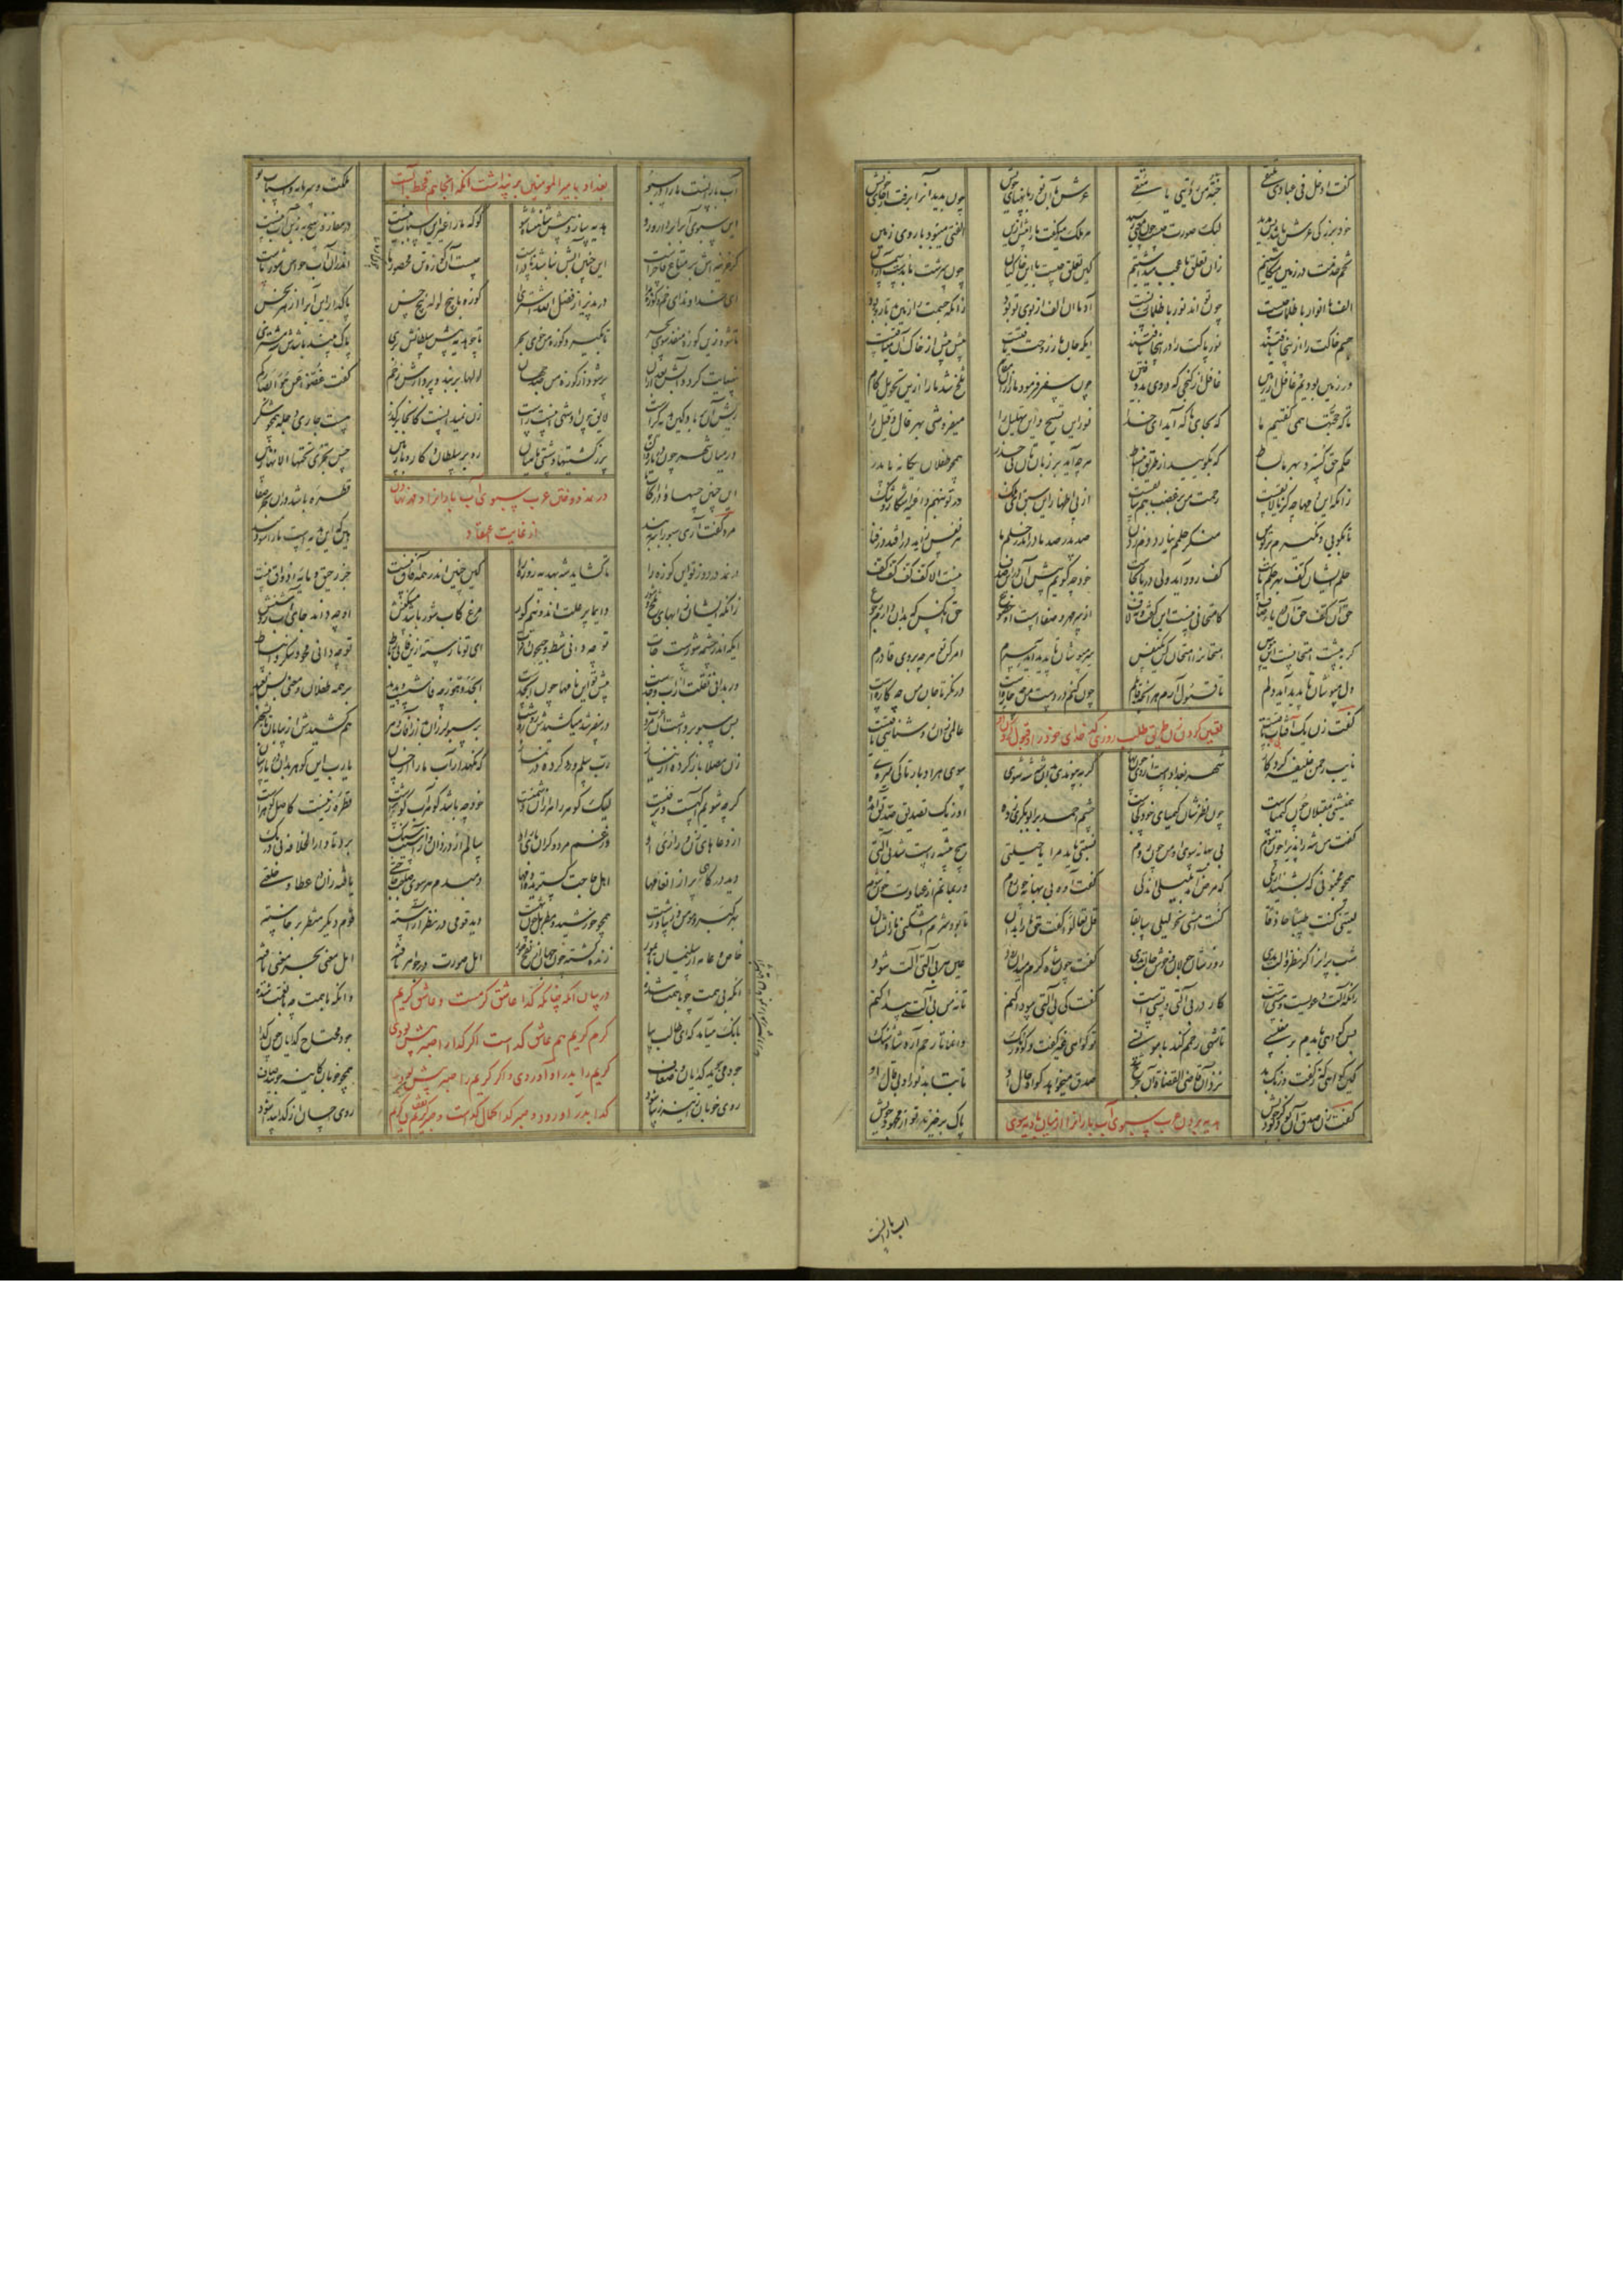 گفت ادخل فی عبادی تلتقی جنة من رؤیتی یا متقی عرش با آن نور با پهنای خویش چون بدید آنرا برفت از جای خویش
خود بزرگی عرش باشد بس مدید لیک صورت کیست چون معنی رسید هر ملک میگفت ما را پیش ازین الفتی میبود با روی زمین
تخم خدمت در زمین میکاشتیم زان تعلق ما عجب میداشتیم کین تعلق چیست با این خاکمان چون سرشت ما بدست از آسمان
الف ما انوار با ظلمات چیست چون تواند نور با ظلمات زیست آدما آن الف از بوی تو بود زانکه جسمت را زمین بد تار و پود
جسم خاکت را ازینجا یافتند نور پاکت را درینجا یافتند اینکه جان ما ز روحت یافتست پیش پیش از خاک آن بر تافتست
در زمین بودیم و غافل از زمین غافل از گنجی که در وی بد دفین چون سفر فرمود ما را زان مقام تلخ شد ما را ازین تحویل کام
تا که حجتها همی گفتیم ما که بجای ما که آید ای خدا نور این تسبیح و این تهلیل را میفروشی بهر قال و قیل را
حکم حق گسترد بهر ما بساط که بگویید از طریق انبساط هرچه آید بر زبانتان بی حذر همچو طفلان یگانه با پدر
زانکه این دمها چه گر نالایقست رحمت من بر غضب هم سابقست از پی اظهار این سبق ای ملک در تو بنهم داعیه اشکال و شک
تا بگویی و نگیرم بر تو من منکر حلمم نیارد دم زدن صد پدر صد مادر اندر حلم ما هر نفس زاید در افتد در فنا
حلم ایشان کف بحر حلم ماست کف رود آید ولی دریا بجاست خود چه گویم پیش آن در این صدف نیست الا کف کف کف کف
حق آن کف حق آن دریای صاف کامتحانی نیست این گفت و نه لاف از سر مهر و صفا است و خضوع حق آنکس که بدو دارم رجوع
گر بپیشت امتحانست این هوس امتحان را امتحان کن یک نفس سر مپوشان تا پدید آید سرم امر کن تو هرچه بر وی قادرم
دل مپوشان تا پدید آید دلم تا قبول آرم هر آنچه قابلم چون کنم در دست من چه چاره است در نگر تا جان من چه کاره است
تعیین کردن زن طریق طلب روزی کدخدای خود را و قبول کردن
گفت زن یک آفتابی تافتست عالمی زو روشنایی یافتست
نایب رحمن خلیفه کردگار شهر بغداد است از وی چون بهار گر بپیوندی بدان شه شه شوی سوی هر ادبار تا کی میروی
همنشینی مقبلان چون کیمیاست چون نظرشان کیمیای خود کجاست چشم احمد بر ابوبکری زده او ز یک تصدیق صدیق آمده
گفت من شه را پذیرا چون شوم بی بهانه سوی او من چون روم نسبتی باید مرا یا حیلتی هیچ پیشه راست شد بی آلتی
همچو مجنونی که بشنید از یکی که مرض آمد بلیلی اندکی گفت آوه بی بهانه چون روم ور بمانم از عیادت چون شوم
لیتنی کنت طبیبا حاذقا کنت امشی نحو لیلی سابقا قل تعالوا گفت حق ما را بدان تا بود شرم اشکنی ما را نشان
شب پران را گر نظر و آلت بدی روزشان جولان و خوش حالت بدی گفت چون شاه کرم میدان رود عین هر بی آلتی آلت شود
زانکه آلت دعویست و هستیست کار در بی آلتی و پستیست گفت کی بی آلتی سودا کنم تا نه من بی آلتی پیدا کنم
پس گواهی بایدم بر مفلسی تا شهی رحمم کند یا مونسی تو گواهی غیر گفت و گو و رنگ وا نما تا رحم آرد شاه شنگ
کین گواهی که ز گفت و رنگ بد نزد آن قاضی القضاة آن جرح شد صدق میخواهد گواه حال او تا بتابد نور او بی قال او
گفت زن صدق آن بود کز بود خویش پاک برخیزند تو از مجهود خویش
هدیه بردن عرب سبوی آب باران را از میان بادیه سوی
آب بارانست
آب بارانست ما را در سبو ملکت و سرمایه و اسباب تو
بغداد بامیر المومنین بر پنداشت آنکه آنجا هم قحط آبست
این سبوی آب را بردار و رو هدیه ساز و پیش شاهنشاه شو گو که ما را غیر این اسباب نیست در مفازه هیچ به زین آب نیست
گر خزینه اش پر متاع فاخرست این چنین آبش نباشد نادرست چیست آن کوزه تن محصور ما اندران آب حواس شور ما
ای خداوند این خم و کوزه مرا در پذیر از فضل الله اشتری کوزه با پنج لوله پنج حس پاک دار این آب را از هر نجس
تا شود زین کوزه منفذ سوی بحر تا بگیرد کوزه من خوی بحر تا چو هدیه پیش سلطانش بری پاک بیند باشدش شه مشتری
بی نهایت گردد آبش بعد از آن پر شود از کوزه من صد جهان لولها بر بند و پر دارش ز خم گفت غضوا عن هوا ابصارکم
ریش او پر باد کین هدیه کراست لایق چون او شهی اینست راست زن نمیدانست کانجا بر گذر هست جاری دجله همچو شکر
در میان شهر چون دریا روان پر ز کشتیها و شست ماهیان رو بر سلطان و کار و بار بین حس تجری تحتها الانهار بین
این چنین حسها و ادراکات ما قطره باشد دران بحر صفا
در نمد دوختن عرب سبوی آب باران را و مهر نهادن
از غایت اعتقاد
مرد گفت آری سبو را سر ببند هین که این هدیه است ما را سودمند
در نمد در دوز تو این کوزه را تا گشاید شه بهدیه روزه را کین چنین اندر همه آفاق نیست جز رحیق و مایه اذواق نیست
زانکه ایشان ز آبهای تلخ و شور دایما پر علت اند و نیم کور مرغ کاب شور باشد مسکنش او چه داند جای آب روشنش
ایکه اندر چشمه شورست جات تو چه دانی شط و جیحون و فرات ای تو نارسته ازین فانی رباط تو چه دانی محو و سکر و انبساط
ور بدانی نقلت از اب و جدست پیش تو این نامها چون ابجدست ابجد و هوز چه فاش است و پدید بر همه طفلان و معنی بس بعید
پس سبو برداشت آن مرد عرب در سفر شد میکشیدش روز و شب بر سبو لرزان بد از آفات دهر هم کشیدش از بیابان تا بشهر
زن مصلا باز کرده از نیاز رب سلم ورد کرده در نماز که نگهدار آب ما را از خسان یا رب این گوهر بدان دریا رسان
گر چه شویم آگهست و پر فنست لیک گوهر را هزاران دشمنست خود چه باشد گوهر آب کوثرست قطره زینست کاصل گوهرست
از دعاهای زن و زاری او وز غم مرد و گرانباری او سالم از دزدان و از آسیب سنگ برد تا دار الخلافه بی درنگ
دید درگاهی پر از انعامها اهل حاجت گستریده دامها دمبدم هر سوی صاحب حاجتی یافته زان در عطا و خلعتی
بهر گبر و مومن و زیبا و زشت همچو خورشید و مطر بل چون بهشت دید قومی در نظر آراسته قوم دیگر منتظر برخاسته
خاص و عامه از سلیمان تا بمور زنده گشته چون جهان از نفخ صور اهل صورت در جواهر بافته اهل معنی بحر معنی یافته
آنکه بی همت چو با همت شده وانکه با همت چه با نعمت شده
در بیان آنکه چنانکه گدا عاشق کرمست و عاشق کریم
کرم کریم هم عاشق گداست اگر گدا را صبر بیش بودی
کریم را بدر او آوردی و اگر کریم را صبر بیش بود
گدا بدر او رود و صبر گدا کمال گداست و صبر کریم
بانگ میآمد که ای طالب بیا جود محتاج گدایان چون گدا
جود میجوید گدایان و ضعاف همچو خوبان کآینه جویند صاف
روی خوبان ز آینه زیبا شود روی احسان از گدا پیدا شود